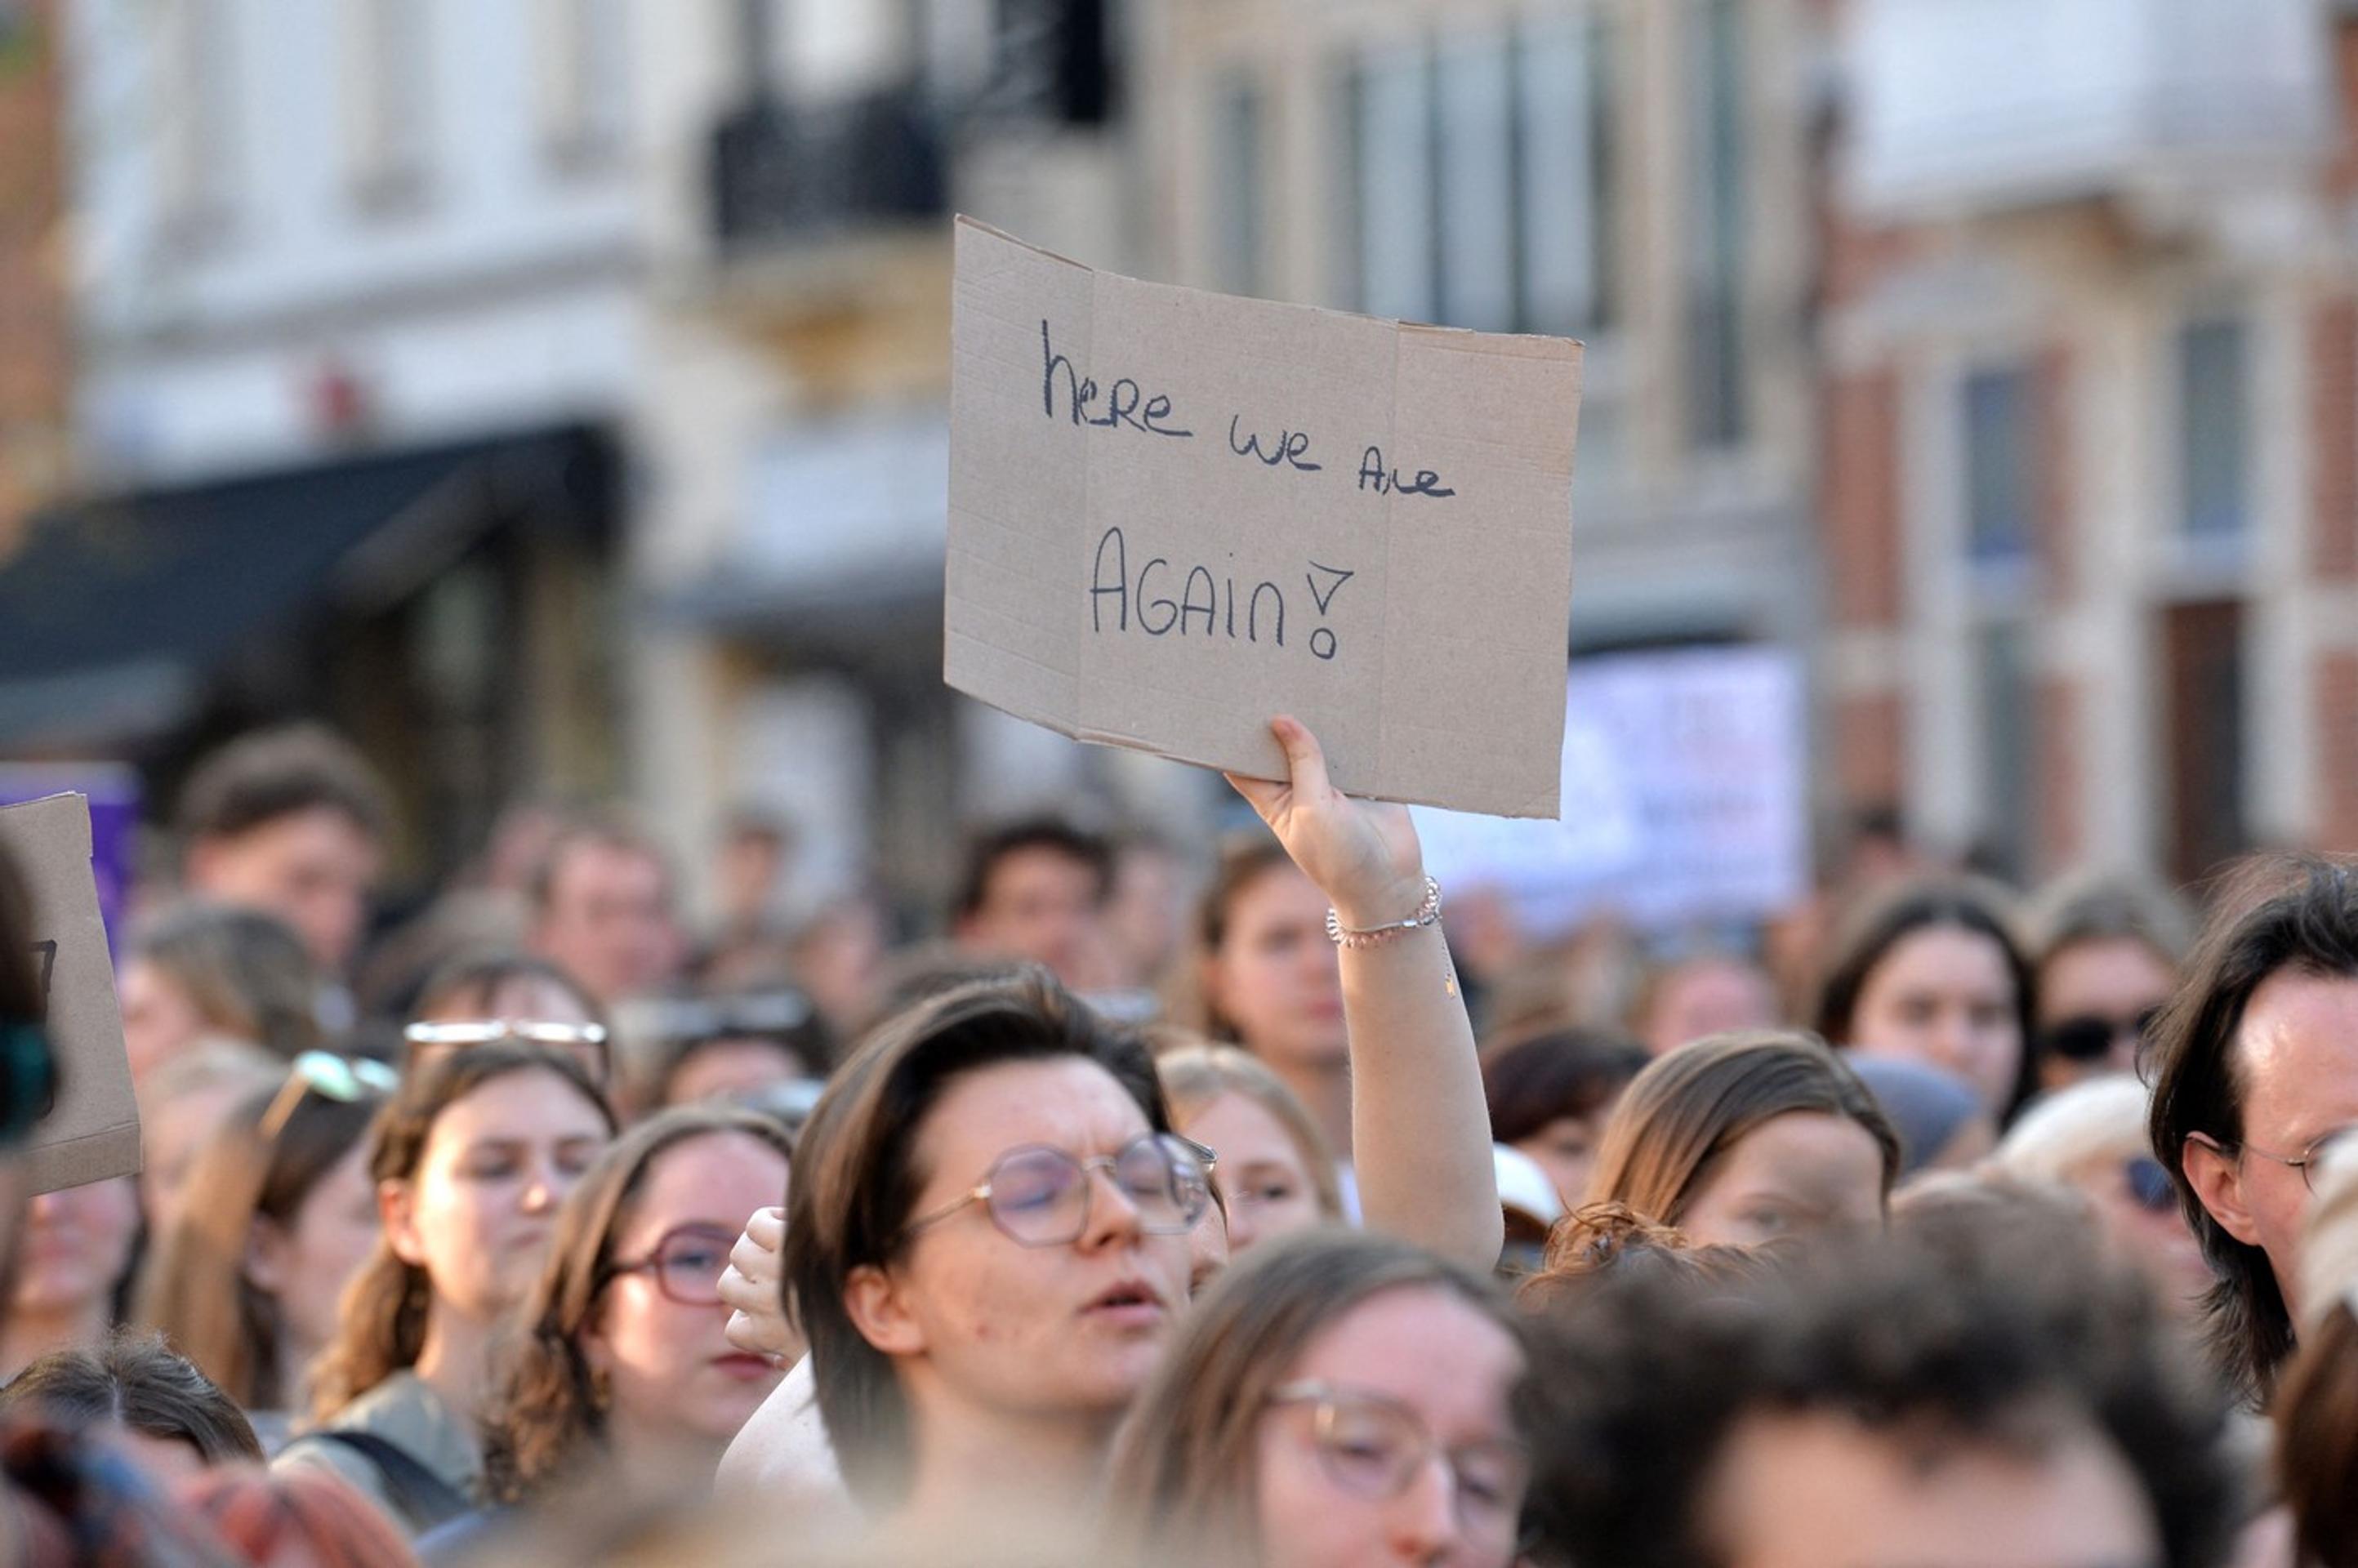 here we are
AGAin!